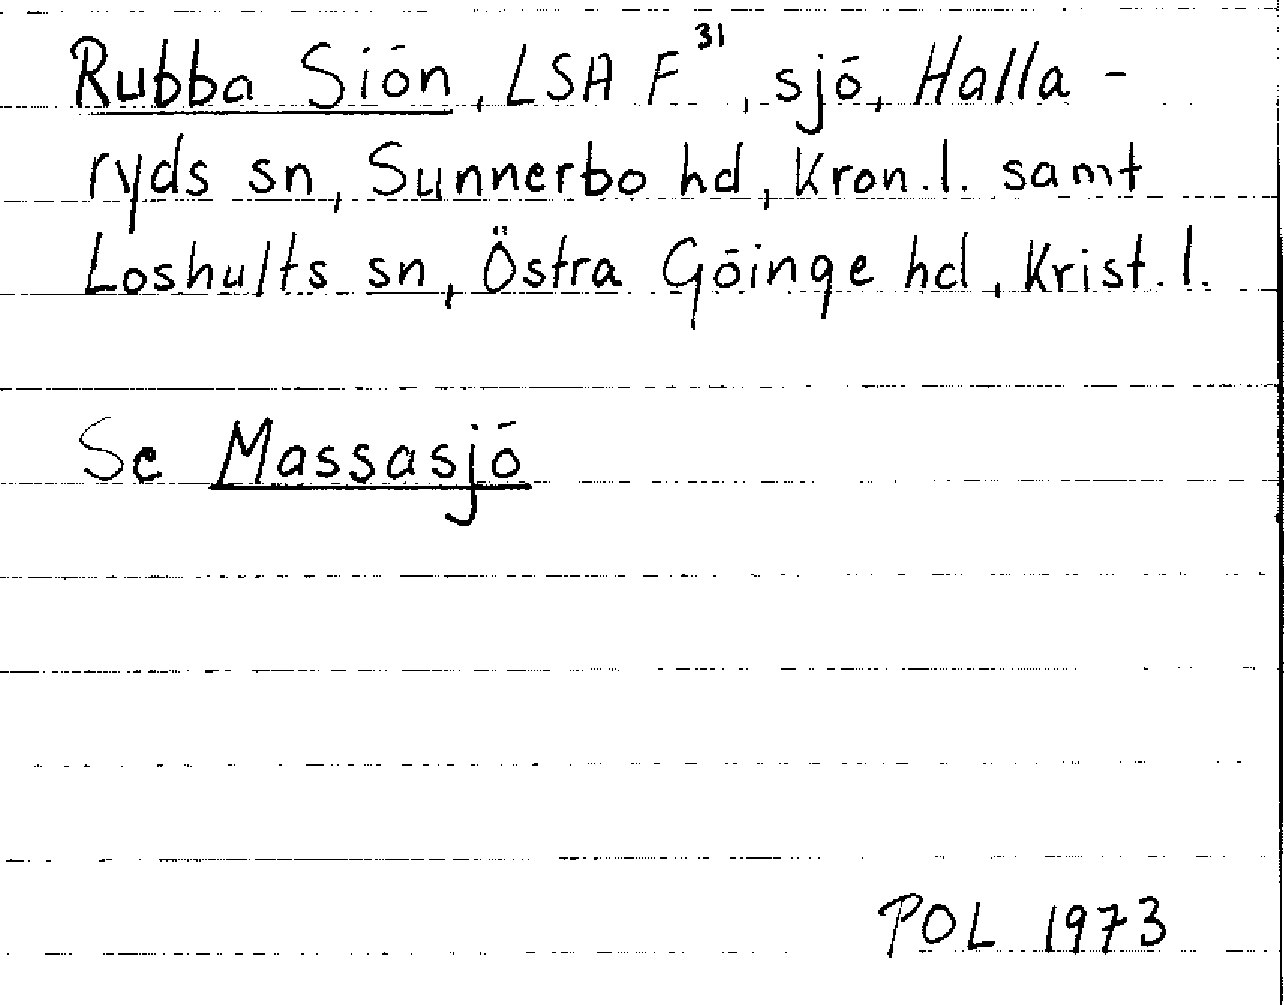 Rubba Siön, LSA F³¹, sjö, Halla-
ryds sn, Sunnerbo hd, Kron.l. samt
Loshults sn, Östra Göinge hd, Krist.l.
Se Massasjö
POL 1973